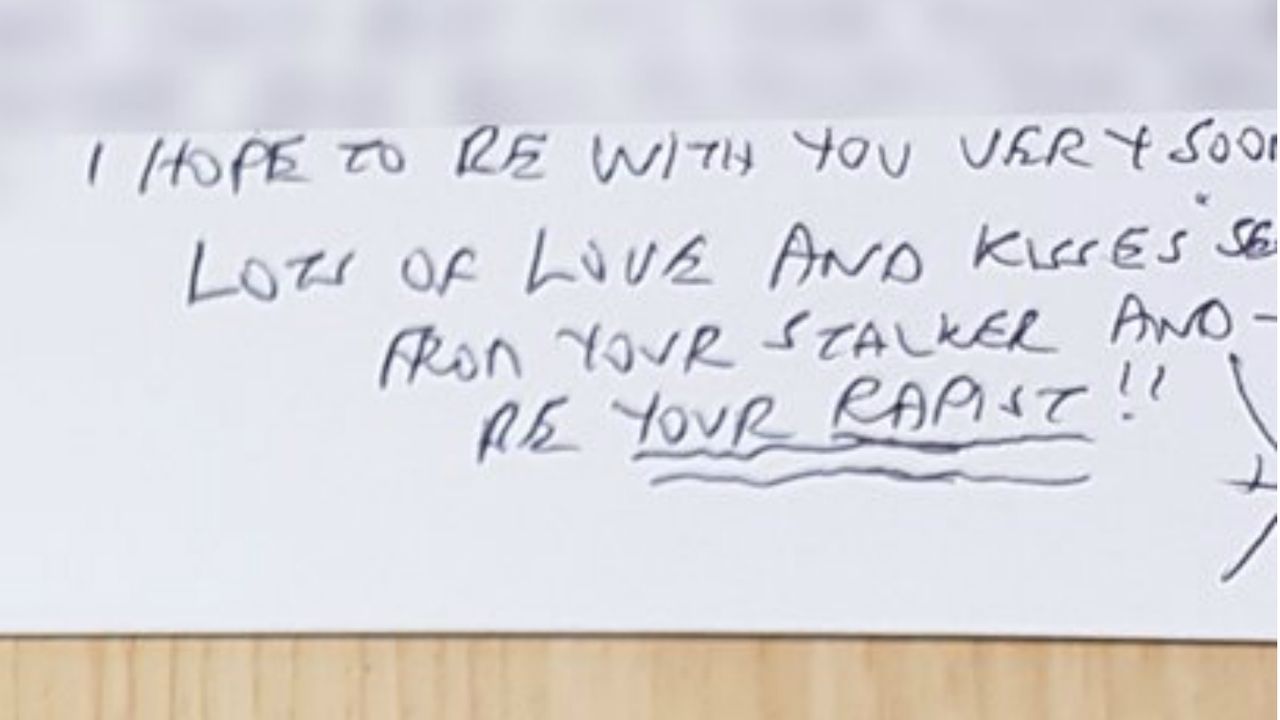 I HOPE TO BE WITH YOU VERY SOON
LOTS OF LOVE AND KISSES
FROM YOUR STALKER AND
BE YOUR RAPIST !!